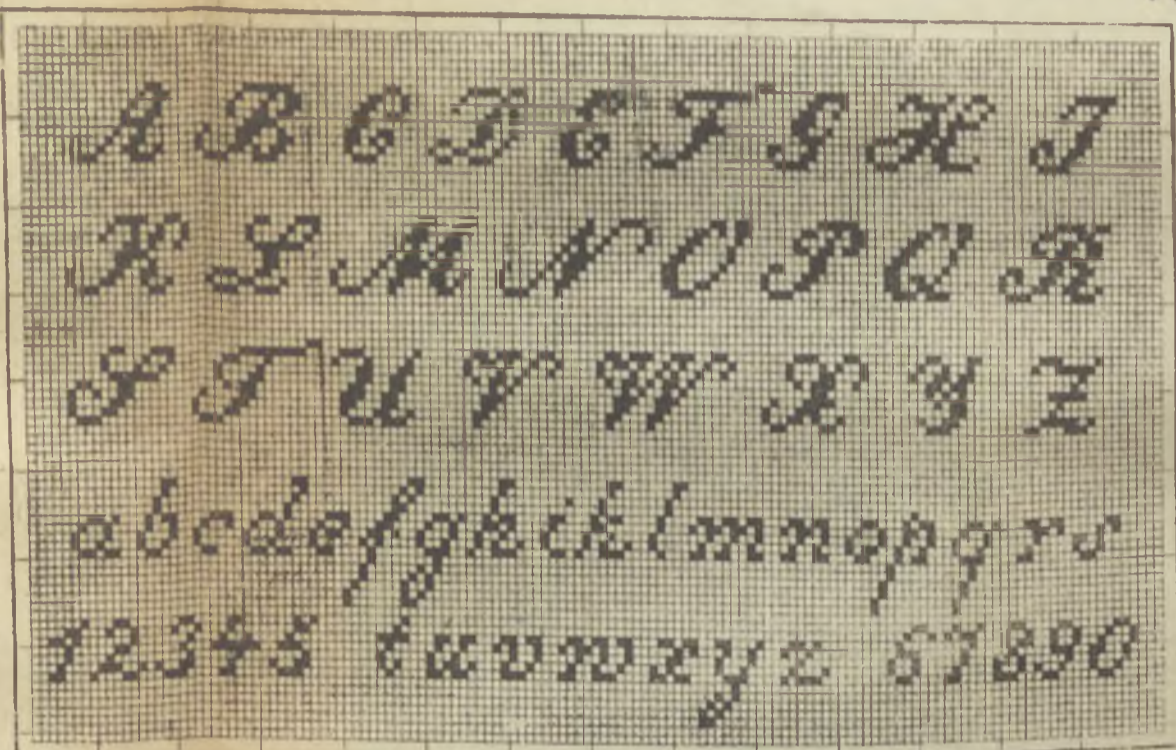 A B C D E F G H I
K L M N O P Q R
S T U V W X Y Z
a b c d e f g h i k l m n o p q r s
1 2 3 4 5 t u v w x y z 6 7 8 9 0